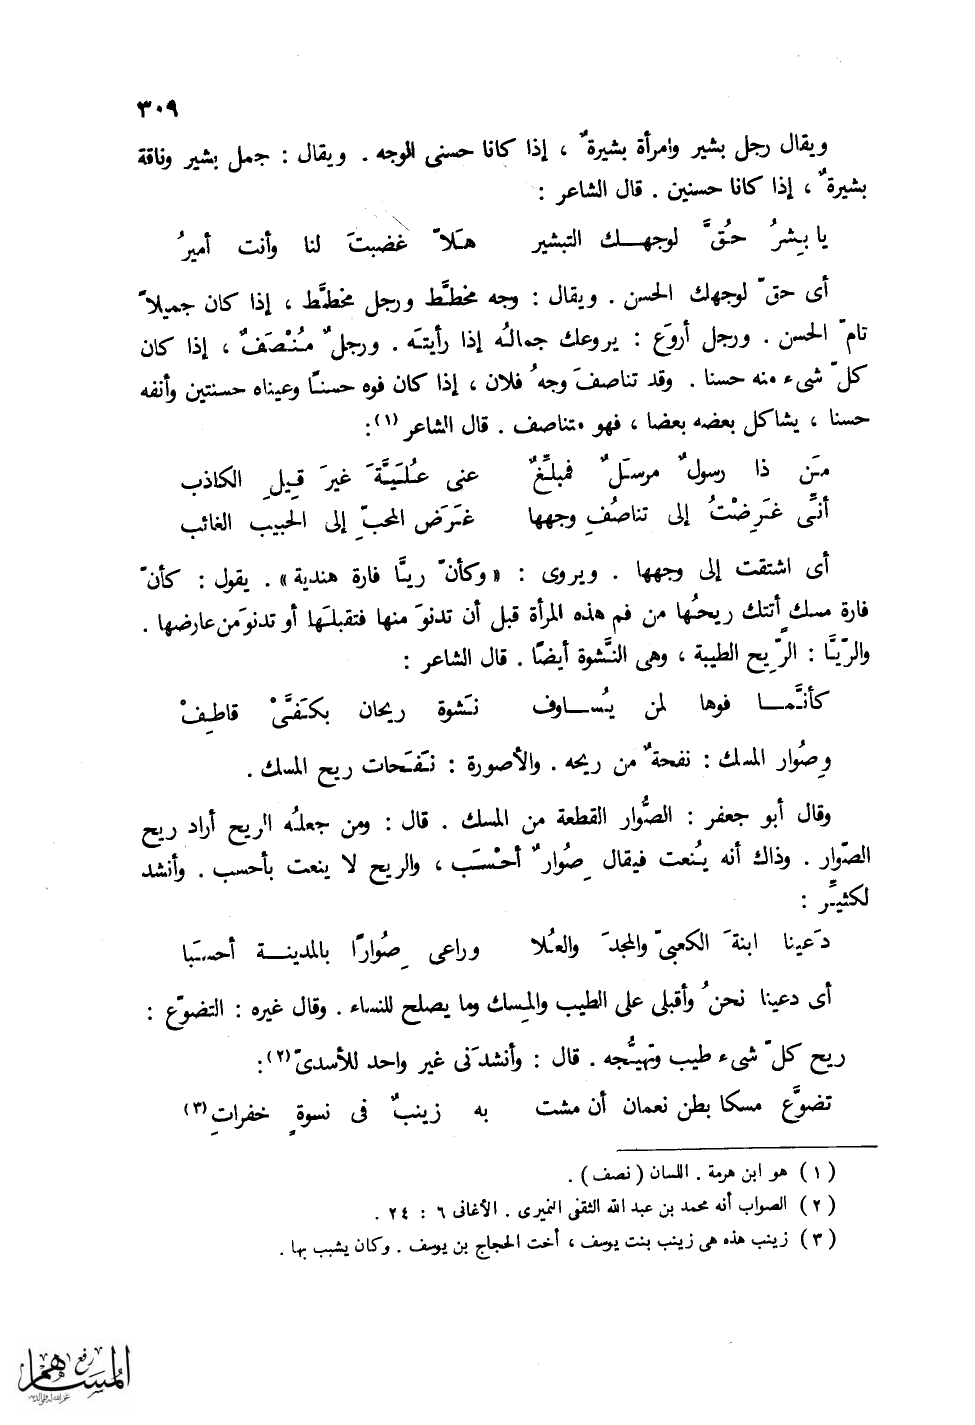 ٣٠٩
ويقال رجل بشير وامرأة بشيرةٌ ، إذا كانا حسنى الوجه . ويقال : جمل بشير وناقة
بشيرةٌ ، إذا كانا حسنين . قال الشاعر :
يا بِشرُ حُقَّ لوجهك التبشير هَلاّ غضبتَ لنا وأنت أميرُ
أى حقّ لوجهك الحسن . ويقال : وجه مخطَّط ورجل مخطَّط ، إذا كان جميلاً
تامّ الحسن . ورجل أروَع : يروعك جمالُه إذا رأيتَه . ورجلٌ مُنْصَفٌ ، إذا كان
كلّ شىء منه حسنا . وقد تناصفَ وجهُ فلان ، إذا كان فوه حسنًا وعيناه حسنتين وأنفه
حسنا ، يشاكل بعضه بعضا ، فهو متناصف . قال الشاعر (١):
مَن ذا رسولٌ مرسَلٌ فمبلِّغٌ عنى عُلَيَّةَ غيرَ قِيلِ الكاذب
أنّى غَرِضْتُ إلى تناصُفِ وجهها غَرَض المحبِّ إلى الحبيب الغائب
أى اشتقت إلى وجهها . ويروى : « وكأنّ ريَّا فارة هندية » . يقول : كأنّ
فارة مسك أتتك ريحُها من فم هذه المرأة قبل أن تدنوَ منها فتقبلَها أو تدنوَ من عارضها .
والرّيَّا : الرِّيح الطيبة ، وهى النَّشوة أيضًا . قال الشاعر :
كأنَّما فوها لمن يُساوف نَشوة ريحان بكَفَّىْ قاطِفْ
وصُِوار المسك : نفحةٌ من ريحه . والأصورة : نَفَحات ريح المسك .
وقال أبو جعفر : الصُِّوار القطعة من المسك . قال : ومن جعلَه الريح أراد ريح
الصّوار . وذاك أنه يُنعت فيقال صُِوارٌ أحْسَب ، والريح لا ينعت بأحسب . وأنشد
لكثيِّر :
دَعينا ابنةَ الكعبىّ والمجدَ والعُلا وراعى صُِوارًا بالمدينة أحسَبا
أى دعينا نحنُ وأقبلى على الطيب والمِسك وما يصلح للنساء . وقال غيره : التضوّع :
ريح كلّ شىء طيب وتهيُّجه . قال : وأنشدَنى غير واحد للأسدىّ (٢):
تضوَّع مسكا بطن نعمان أن مشت به زينبٌ فى نسوةٍ خفراتِ (٣)
( ١ ) هو ابن هرمة . اللسان ( نصف ) .
( ٢ ) الصواب أنه محمد بن عبد الله الثقفى النميرى . الأغانى ٦ : ٢٤ .
( ٣ ) زينب هذه هى زينب بنت يوسف ، أخت الحجاج بن يوسف . وكان يشبب بها .
رفع
المساهم